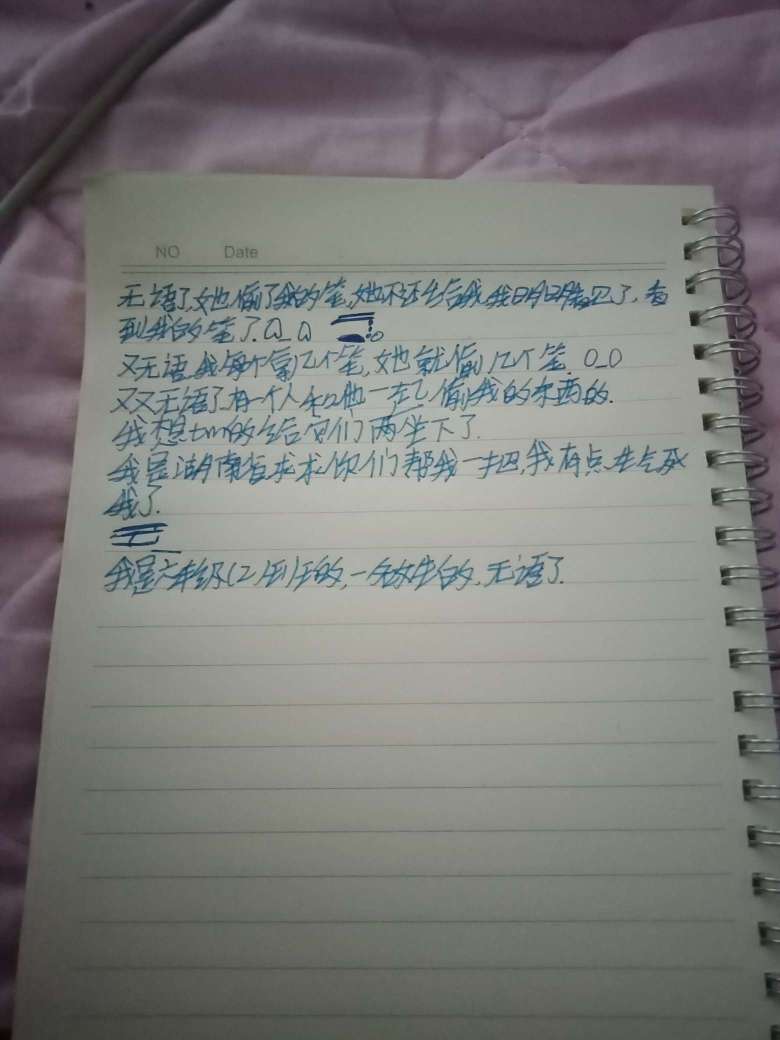 NO Date
无语了,她偷了我的笔,她不还给我,我明明看见了,看
到我的笔了.Q_Q
又无语,我每个 几个笔,她就偷几个笔. O_O
又又无语了,有一个人和他一在 偷我的东西的.
我想tm的给它们两坐下了.
我是湖南省求求你们帮我一把,我有点生气死
我了.
我是六年级(2) 的,一 生的,无语了.